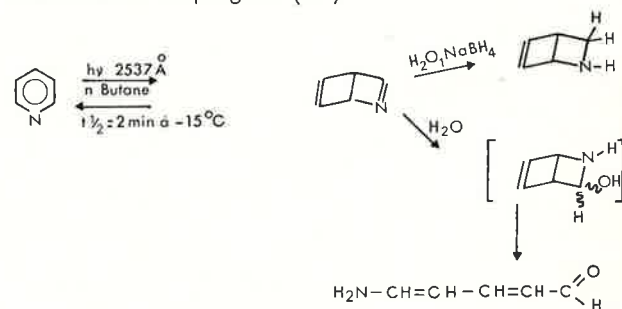 hγ 2537 Å
n Butane
t ½ = 2 min á -15°C
N
N
H₂O, NaBH₄
H
H
N-H
H₂O
N-H
OH
H
H₂N-CH=CH-CH=CH-C
O
H